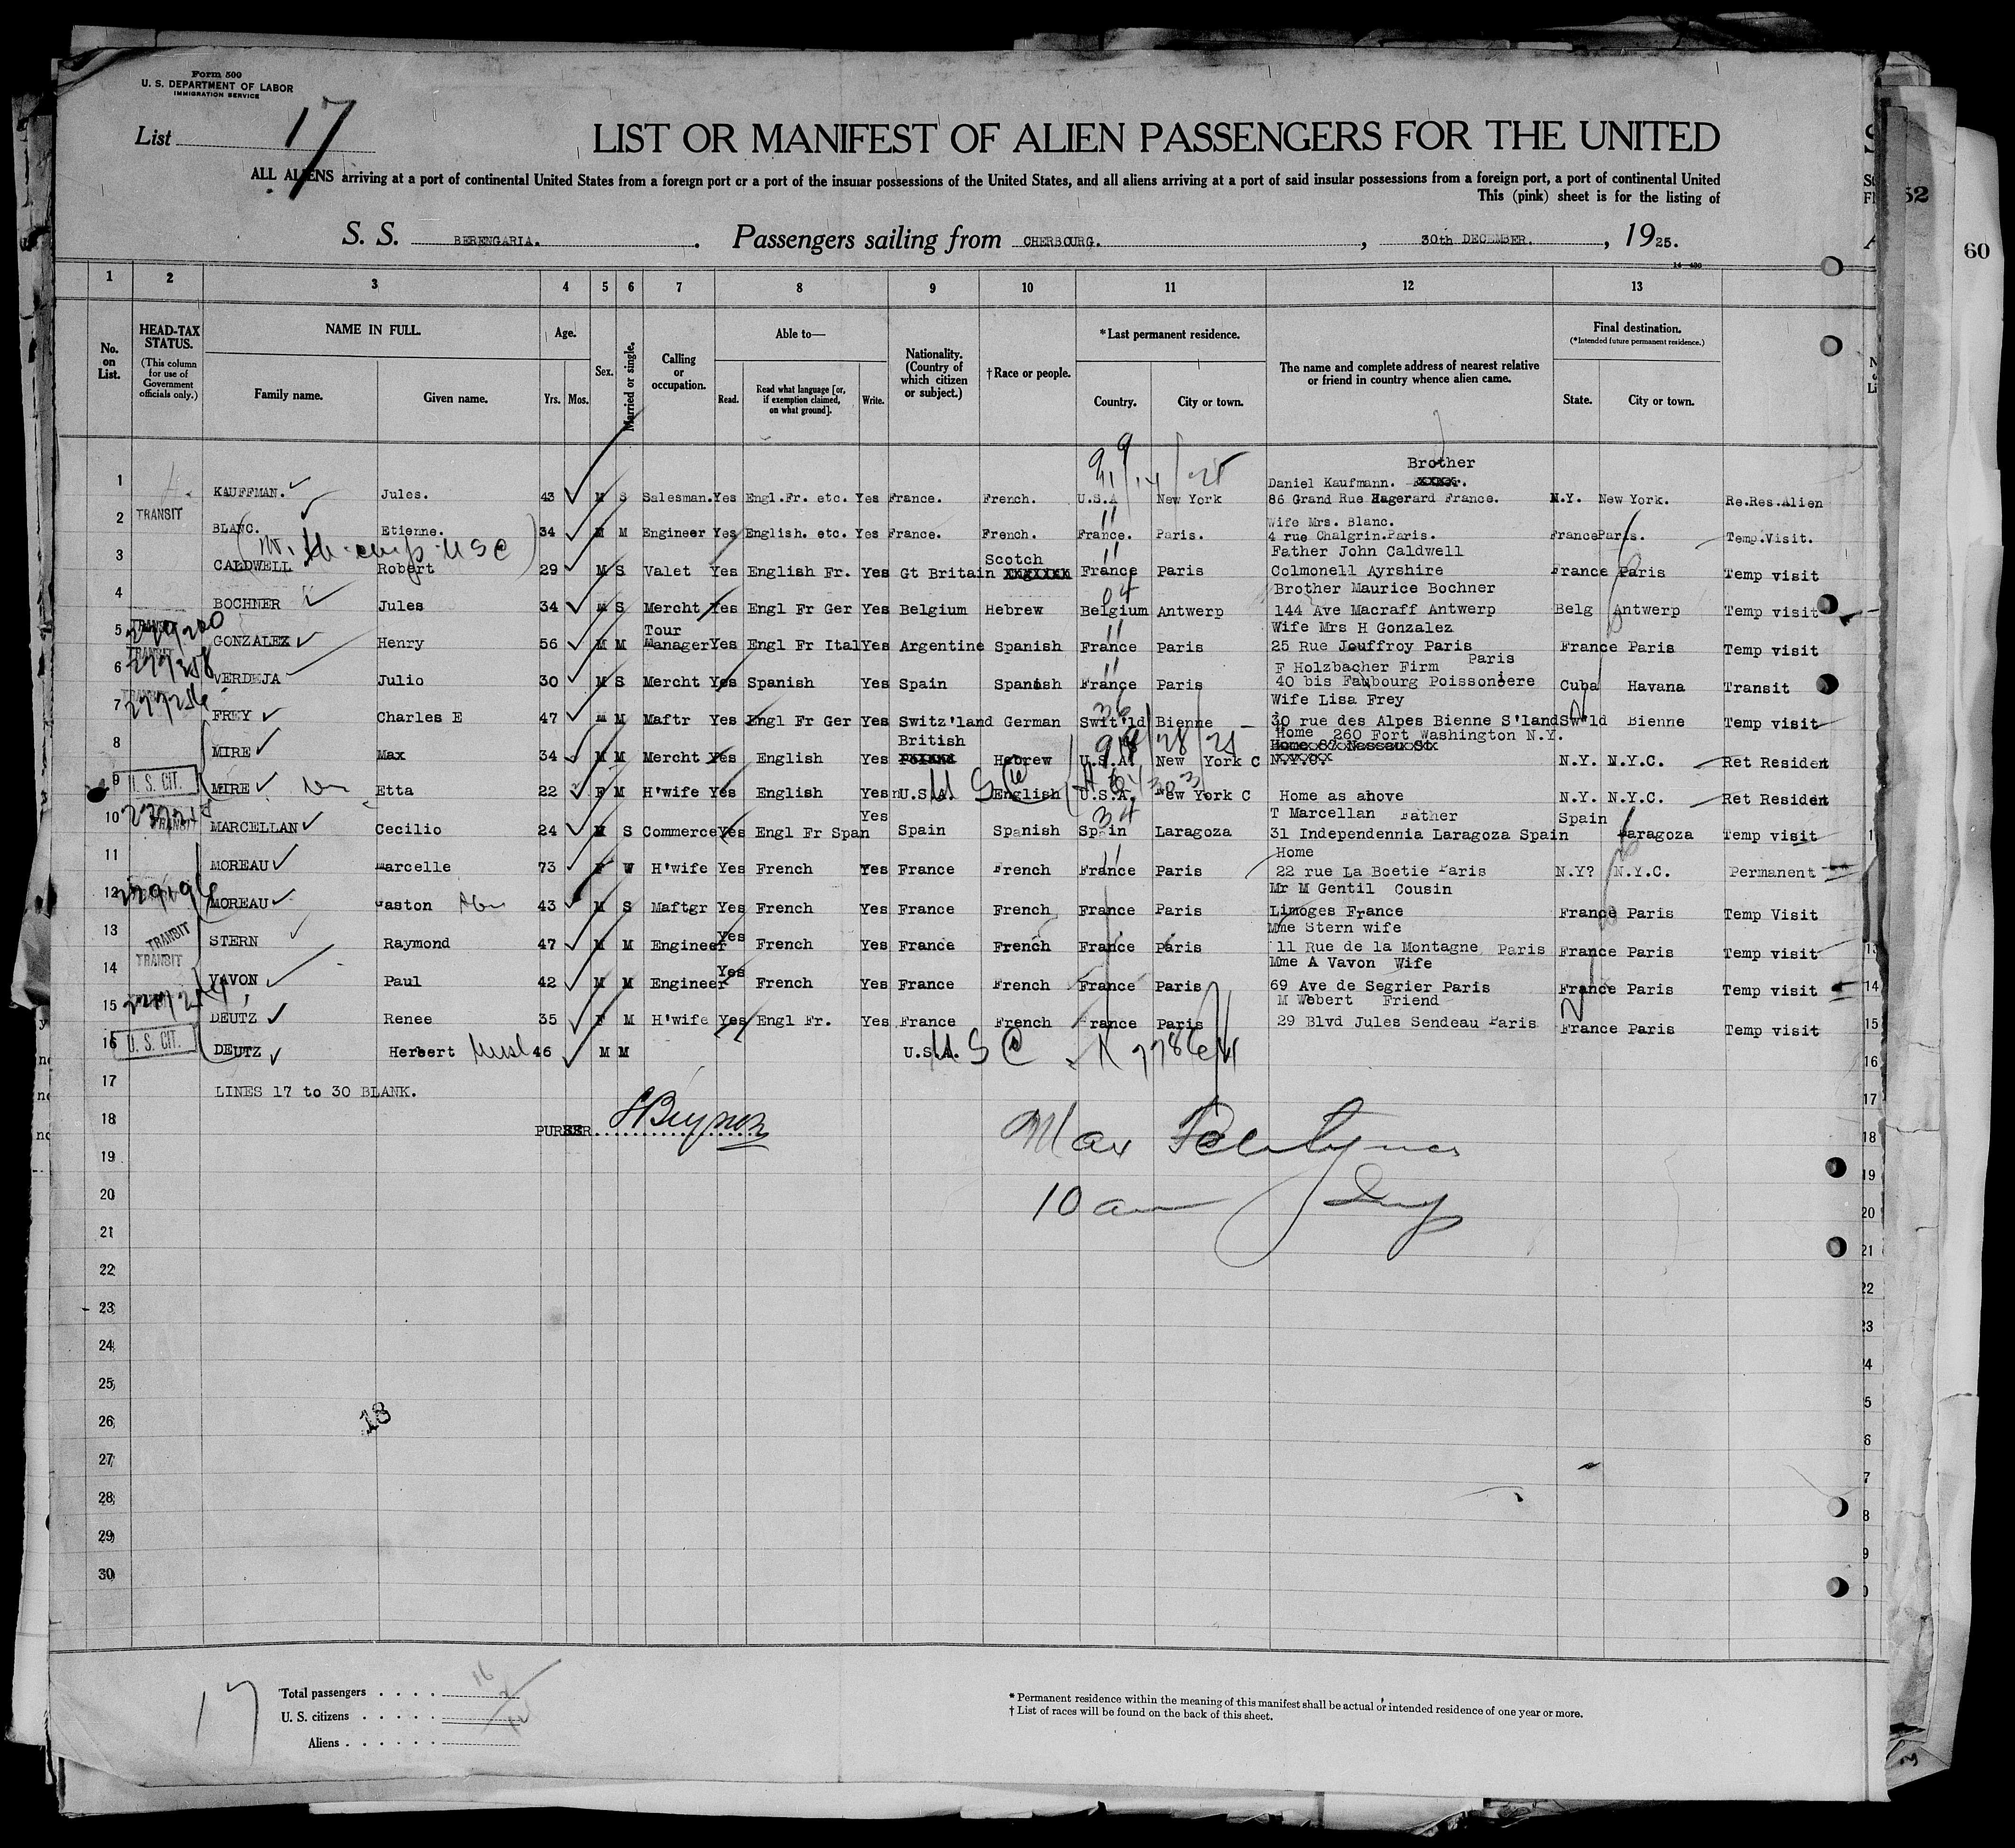 Form 500
U. S. DEPARTMENT OF LABOR
IMMIGRATION SERVICE
List 17
LIST OR MANIFEST OF ALIEN PASSENGERS FOR THE UNITED
ALL ALIENS arriving at a port of continental United States from a foreign port or a port of the insular possessions of the United States, and all aliens arriving at a port of said insular possessions from a foreign port, a port of continental United
This (pink) sheet is for the listing of
S. S. BERENGARIA. Passengers sailing from CHERBOURG. , 30th DECEMBER. , 1925.
52
60
14-430
1 2 3 4 5 6 7 8 9 10 11 12 13
No. on List.
HEAD-TAX STATUS. (This column for use of Government officials only.)
NAME IN FULL. Family name. Given name.
Age. Yrs. Mos.
Sex.
Married or single.
Calling or occupation.
Able to— Read. Read what language [or, if exemption claimed, on what ground]. Write.
Nationality. (Country of which citizen or subject.)
† Race or people.
*Last permanent residence. Country. City or town.
The name and complete address of nearest relative or friend in country whence alien came.
Final destination. (*Intended future permanent residence.) State. City or town.
Brother
1 KAUFFMAN. Jules. 43 M S Salesman. Yes Engl.Fr. etc. Yes France. French. U.S.A New York Daniel Kaufmann. 86 Grand Rue Hagerard France. N.Y. New York. Re.Res.Alien
2 TRANSIT BLANC. Etienne. 34 M M Engineer Yes English. etc. Yes France. French. France. Paris. Wife Mrs. Blanc. 4 rue Chalgrin.Paris. France Paris. Temp.Visit.
3 CALDWELL Robert 29 M S Valet Yes English Fr. Yes Gt Britain Scotch France Paris Father John Caldwell Colmonell Ayrshire France Paris Temp visit
4 BOCHNER Jules 34 M S Mercht Yes Engl Fr Ger Yes Belgium Hebrew Belgium Antwerp Brother Maurice Bochner 144 Ave Macraff Antwerp Belg Antwerp Temp visit
5 TRANSIT GONZALEZ Henry 56 M M Tour Manager Yes Engl Fr Ital Yes Argentine Spanish France Paris Wife Mrs H Gonzalez 25 Rue Jouffroy Paris France Paris Temp visit
6 TRANSIT VERDEJA Julio 30 M S Mercht Yes Spanish Yes Spain Spanish France Paris F Holzbacher Firm Paris 40 bis Faubourg Poissoniere Cuba Havana Transit
7 TRANSIT FREY Charles E 47 M M Maftr Yes Engl Fr Ger Yes Switz'land German Swit'ld Bienne Wife Lisa Frey 30 rue des Alpes Bienne S'land Sw'ld Bienne Temp visit
8 MIRE Max 34 M M Mercht Yes English Yes British Hebrew U.S.A. New York C Home 260 Fort Washington N.Y. N.Y. N.Y.C. Ret Resident
9 U. S. CIT. MIRE Etta 22 F M H'wife Yes English Yes U.S.A. English U.S.A. New York C Home as above N.Y. N.Y.C. Ret Resident
10 TRANSIT MARCELLAN Cecilio 24 M S Commerce Yes Engl Fr Span Yes Spain Spanish Spain Laragoza T Marcellan Father 31 Independennia Laragoza Spain Spain Laragoza Temp visit
11 MOREAU Marcelle 73 F W H'wife Yes French Yes France French France Paris Home 22 rue La Boetie Paris N.Y? N.Y.C. Permanent
12 MOREAU Gaston 43 M S Maftgr Yes French Yes France French France Paris Mr M Gentil Cousin Limoges France France Paris Temp Visit
13 TRANSIT STERN Raymond 47 M M Engineer Yes French Yes France French France Paris Mme Stern wife 11 Rue de la Montagne Paris France Paris Temp visit
14 TRANSIT VAVON Paul 42 M M Engineer Yes French Yes France French France Paris Mme A Vavon Wife 69 Ave de Segrier Paris France Paris Temp visit
15 DEUTZ Renee 35 F M H'wife Yes Engl Fr. Yes France French France Paris M Webert Friend 29 Blvd Jules Sendeau Paris France Paris Temp visit
16 U. S. CIT. DEUTZ Herbert 46 M M U.S.A. U S C
17 LINES 17 to 30 BLANK.
18 PURSER
19
20 10 am
21
22
23
24
25
26 18
27
28
29
30
17
Total passengers 16
U. S. citizens
Aliens
* Permanent residence within the meaning of this manifest shall be actual or intended residence of one year or more.
† List of races will be found on the back of this sheet.